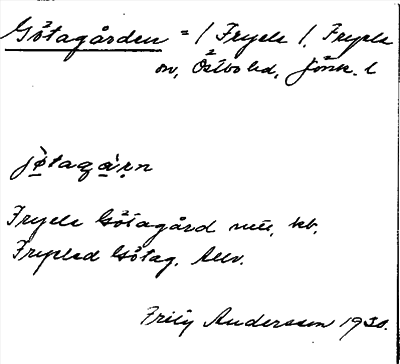 Götagården = / Fryele /. Fryele
sn, Östbo hd, Jönk. l
jø̀tagàṛn
Fryele Götagård mtl, kb.
Fryeled Götag. Allv.
Fritz Andersson 1930.